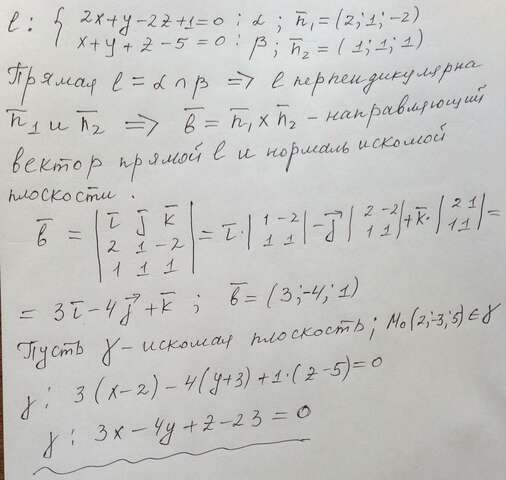 l: { 2x+y-2z+1=0 : α ; n̄₁=(2;1;-2)
x+y+z-5=0 : β ; n̄₂=(1;1;1)
Прямая l=α∩β => l перпендикулярна
n̄₁ и n̄₂ => b̄=n̄₁×n̄₂ - направляющий
вектор прямой l и нормаль искомой
плоскости.
b̄ = | i j k; 2 1 -2; 1 1 1 | = i·| 1 -2; 1 1 | - j | 2 -2; 1 1 | + k·| 2 1; 1 1 | =
= 3i-4j+k ; b̄=(3;-4;1)
Пусть γ-искомая плоскость; M₀(2;-3;5)∈γ
γ: 3(x-2)-4(y+3)+1·(z-5)=0
γ: 3x-4y+z-23=0